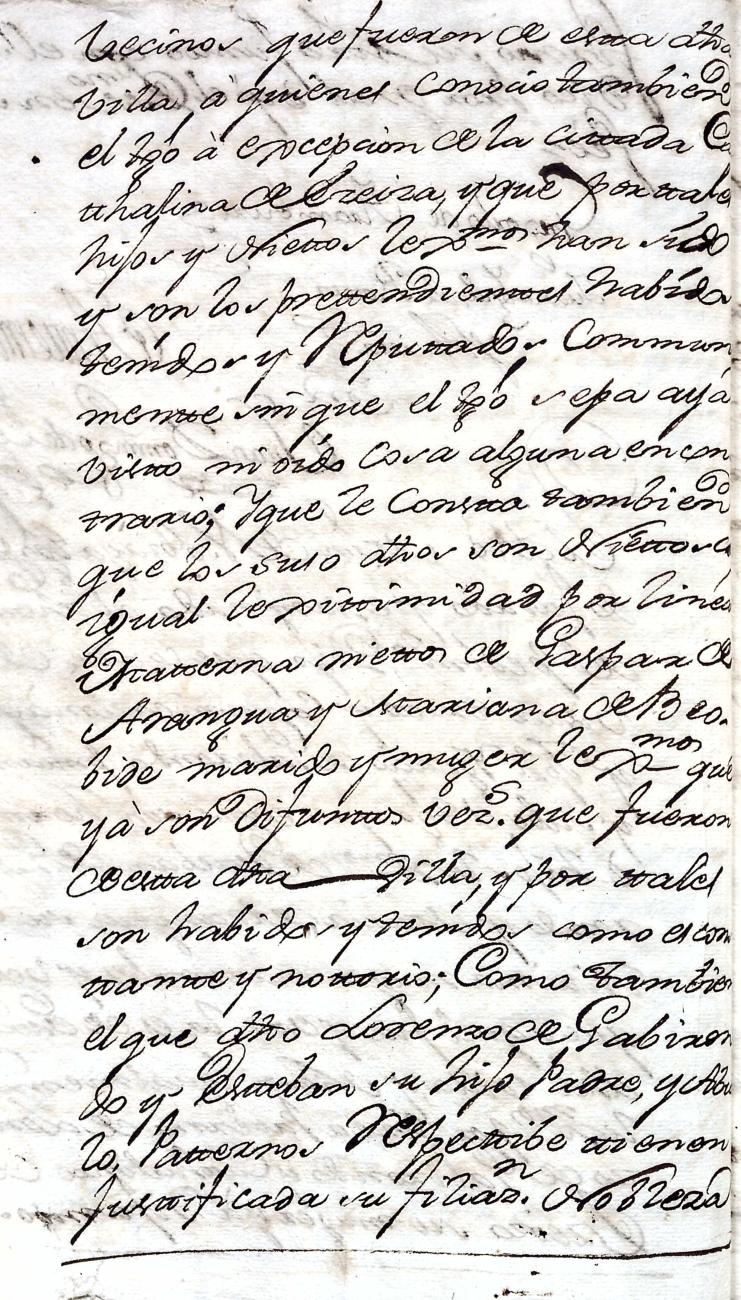 Vecinos que fueron de esta dha
villa, à quienes conocio tambien
el tgó à excepcion de la cittada Ca
tthalina de Ereiza, y que por ttales
hijos y Niettos lexmos han sido
y son los prettendienttes habido
tenidos y Reputtados Commun
mentte sin que el tgó sepa aya
visto ni oido cosa alguna en con
trario; Y que le Constta tambien
que los suso dhos son Niettos
igual lexittimidad por linea
Matterna niettos de Gaspar de
Arangua y Mariana de Beo.
bide marido y muger lexmos que
yà son Difunttos vezs. que fueron
de estta dha Villa, y por ttales
son habidos y tenidos como es con
ttantte y nottorio; Como tambien
el que dho Lorenzo de Gabiron
do y Estteban su hijo Padre, y Abu
lo, Patternos Respecttibe ttienen
Justtificada su filiazn. Nobleza